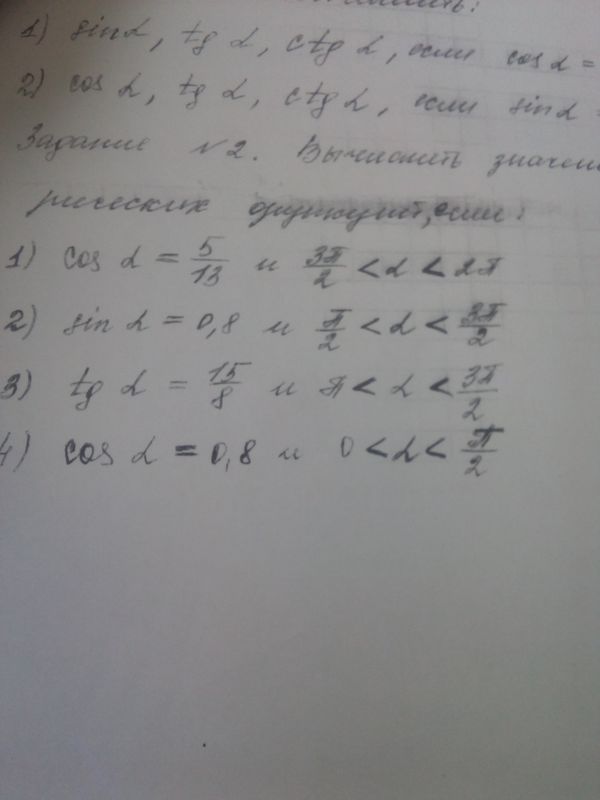 1) sin α, tg α, ctg α, если cos α =
2) cos α, tg α, ctg α, если sin α =
Задание №2. Вычислить значени
рических функций, если:
1) cos α = 5/13 и 3π/2 < α < 2π
2) sin α = 0,8 и π/2 < α < 3π/2
3) tg α = 15/8 и π < α < 3π/2
4) cos α = 0,8 и 0 < α < π/2